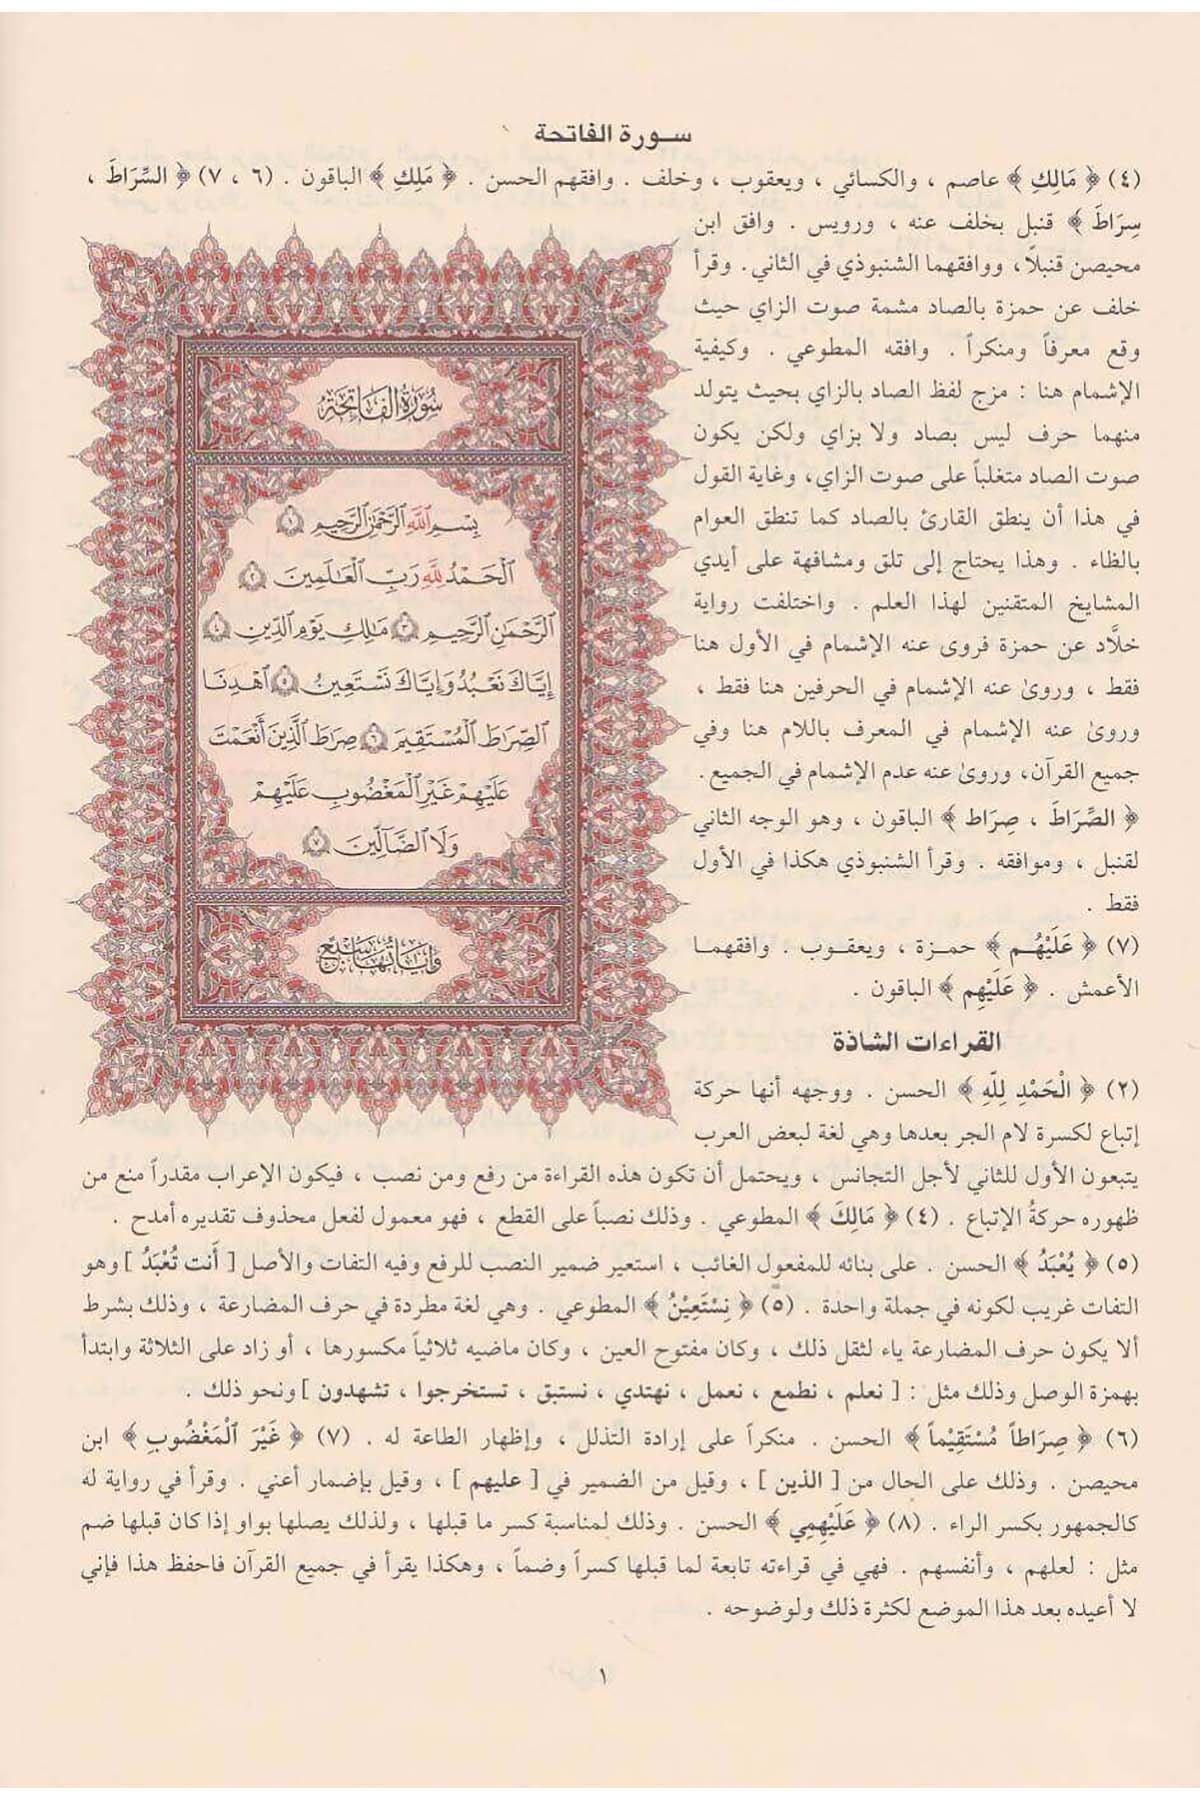 سورة الفاتحة
(٤) ﴿ مَالِكِ ﴾ عاصم ، والكسائي ، ويعقوب ، وخلف . وافقهم الحسن . ﴿ مَلِكِ ﴾ الباقون . (٦ ، ٧) ﴿ السِّرَاطَ ،
سِرَاطَ ﴾ قنبل بخلف عنه ، ورويس . وافق ابن
محيصن قنبلاً ، ووافقهما الشنبوذي في الثاني . وقرأ
خلف عن حمزة بالصاد مشمة صوت الزاي حيث
وقع معرفاً ومنكراً . وافقه المطوعي . وكيفية
الإشمام هنا : مزج لفظ الصاد بالزاي بحيث يتولد
منهما حرف ليس بصاد ولا بزاي ولكن يكون
صوت الصاد متغلباً على صوت الزاي ، وغاية القول
في هذا أن ينطق القارئ بالصاد كما تنطق العوام
بالظاء . وهذا يحتاج إلى تلق ومشافهة على أيدي
المشايخ المتقنين لهذا العلم . واختلفت رواية
خلاَّد عن حمزة فروى عنه الإشمام في الأول هنا
فقط ، وروىٰ عنه الإشمام في الحرفين هنا فقط ،
وروىٰ عنه الإشمام في المعرف باللام هنا وفي
جميع القرآن ، وروىٰ عنه عدم الإشمام في الجميع .
﴿ الصِّرَاطَ ، صِرَاط ﴾ الباقون ، وهو الوجه الثاني
لقنبل ، وموافقه . وقرأ الشنبوذي هكذا في الأول
فقط .
(٧) ﴿ عَلَيْهُم ﴾ حمزة ، ويعقوب . وافقهما
الأعمش . ﴿ عَلَيْهِم ﴾ الباقون .
سُورَةُ الفَاتِحَةِ
بِسْمِ ٱللَّهِ ٱلرَّحْمَٰنِ ٱلرَّحِيمِ ١
ٱلْحَمْدُ لِلَّهِ رَبِّ ٱلْعَٰلَمِينَ ٢
ٱلرَّحْمَٰنِ ٱلرَّحِيمِ ٣ مَٰلِكِ يَوْمِ ٱلدِّينِ ٤
إِيَّاكَ نَعْبُدُ وَإِيَّاكَ نَسْتَعِينُ ٥ ٱهْدِنَا
ٱلصِّرَٰطَ ٱلْمُسْتَقِيمَ ٦ صِرَٰطَ ٱلَّذِينَ أَنْعَمْتَ
عَلَيْهِمْ غَيْرِ ٱلْمَغْضُوبِ عَلَيْهِمْ
وَلَا ٱلضَّآلِّينَ ٧
وَآيَاتُهَا سَبْعٌ
القراءات الشاذة
(٢) ﴿ الْحَمْدِ لِلّهِ ﴾ الحسن . ووجهه أنها حركة
إتباع لكسرة لام الجر بعدها وهي لغة لبعض العرب
يتبعون الأول للثاني لأجل التجانس ، ويحتمل أن تكون هذه القراءة من رفع ومن نصب ، فيكون الإعراب مقدراً منع من
ظهوره حركةُ الإتباع . (٤) ﴿ مَالِكَ ﴾ المطوعي . وذلك نصباً على القطع ، فهو معمول لفعل محذوف تقديره أمدح .
(٥) ﴿ يُعْبَدُ ﴾ الحسن . على بنائه للمفعول الغائب ، استعير ضمير النصب للرفع وفيه التفات والأصل [ أنت تُعْبَدُ ] وهو
التفات غريب لكونه في جملة واحدة . (٥) ﴿ نِسْتَعِيْنُ ﴾ المطوعي . وهي لغة مطردة في حرف المضارعة ، وذلك بشرط
ألا يكون حرف المضارعة ياء لثقل ذلك ، وكان مفتوح العين ، وكان ماضيه ثلاثياً مكسورها ، أو زاد على الثلاثة وابتدأ
بهمزة الوصل وذلك مثل : [ نعلم ، نطمع ، نعمل ، نهتدي ، نستبق ، تستخرجوا ، تشهدون ] ونحو ذلك .
(٦) ﴿ صِرَاطاً مُسْتَقِيْماً ﴾ الحسن . منكراً على إرادة التذلل ، وإظهار الطاعة له . (٧) ﴿ غَيْرَ الْمَغْضُوبِ ﴾ ابن
محيصن . وذلك على الحال من [ الذين ] ، وقيل من الضمير في [ عليهم ] ، وقيل بإضمار أعني . وقرأ في رواية له
كالجمهور بكسر الراء . (٨) ﴿ عَلَيْهِمِي ﴾ الحسن . وذلك لمناسبة كسر ما قبلها ، ولذلك يصلها بواو إذا كان قبلها ضم
مثل : لعلهم ، وأنفسهم . فهي في قراءته تابعة لما قبلها كسراً وضماً ، وهكذا يقرأ في جميع القرآن فاحفظ هذا فإني
لا أعيده بعد هذا الموضع لكثرة ذلك ولوضوحه .
١